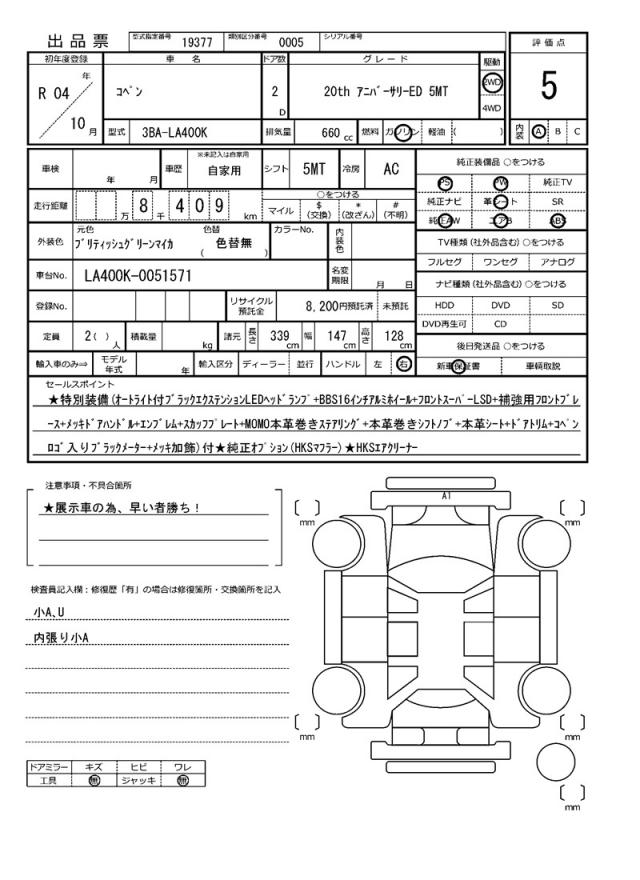 出品票 型式指定番号 19377 類別区分番号 0005 シリアル番号
評価点
5
初年度登録 車名 ドア数 グレード 駆動
R 04 年 10 月
コペン 2 D 20th アニバーサリーED 5MT 2WD 4WD
型式 3BA-LA400K 排気量 660 cc 燃料 ガソリン 軽油 ( ) 内装 A B C
車検 年 月 車歴 ※未記入は自家用 自家用 シフト 5MT 冷房 AC
純正装備品 ○をつける
PS PW 純正TV
純正ナビ 革シート SR
純正AW エアB ABS
走行距離 万 8 千 4 0 9 km ○をつける
マイル $(交換) *(改ざん) #(不明)
外装色 元色 ブリティッシュグリーンマイカ 色替 ( 色替無 ) カラーNo. 内装色
TV種類(社外品含む) ○をつける
フルセグ ワンセグ アナログ
車台No. LA400K-0051571 名変期限 月 日
ナビ種類(社外品含む) ○をつける
HDD DVD SD
DVD再生可 CD
登録No. リサイクル預託金 8,200円預託済 未預託
定員 2( ) 人 積載量 kg 諸元 長さ 339 cm 幅 147 cm 高さ 128 cm
後日発送品 ○をつける
新車保証書 車輌取説
輸入車のみ⇒ モデル年式 年 輸入区分 ディーラー 並行 ハンドル 左 右
セールスポイント
★特別装備(オートライト付ブラックエクステンションLEDヘッドランプ+BBS16インチアルミホイール+フロントスーパーLSD+補強用フロントブレ
ース+メッキドアハンドル+エンブレム+スカッフプレート+MOMO本革巻きステアリング+本革巻きシフトノブ+本革シート+ドアトリム+コペン
ロゴ入りブラックメーター+メッキ加飾)付★純正オプション(HKSマフラー)★HKSエアクリーナー
注意事項・不具合箇所
★展示車の為、早い者勝ち!
検査員記入欄:修復歴「有」の場合は修復箇所・交換箇所を記入
小A、U
内張り小A
ドアミラー キズ ヒビ ワレ
工具 無 ジャッキ 無
A1
mm
mm
mm
mm
mm